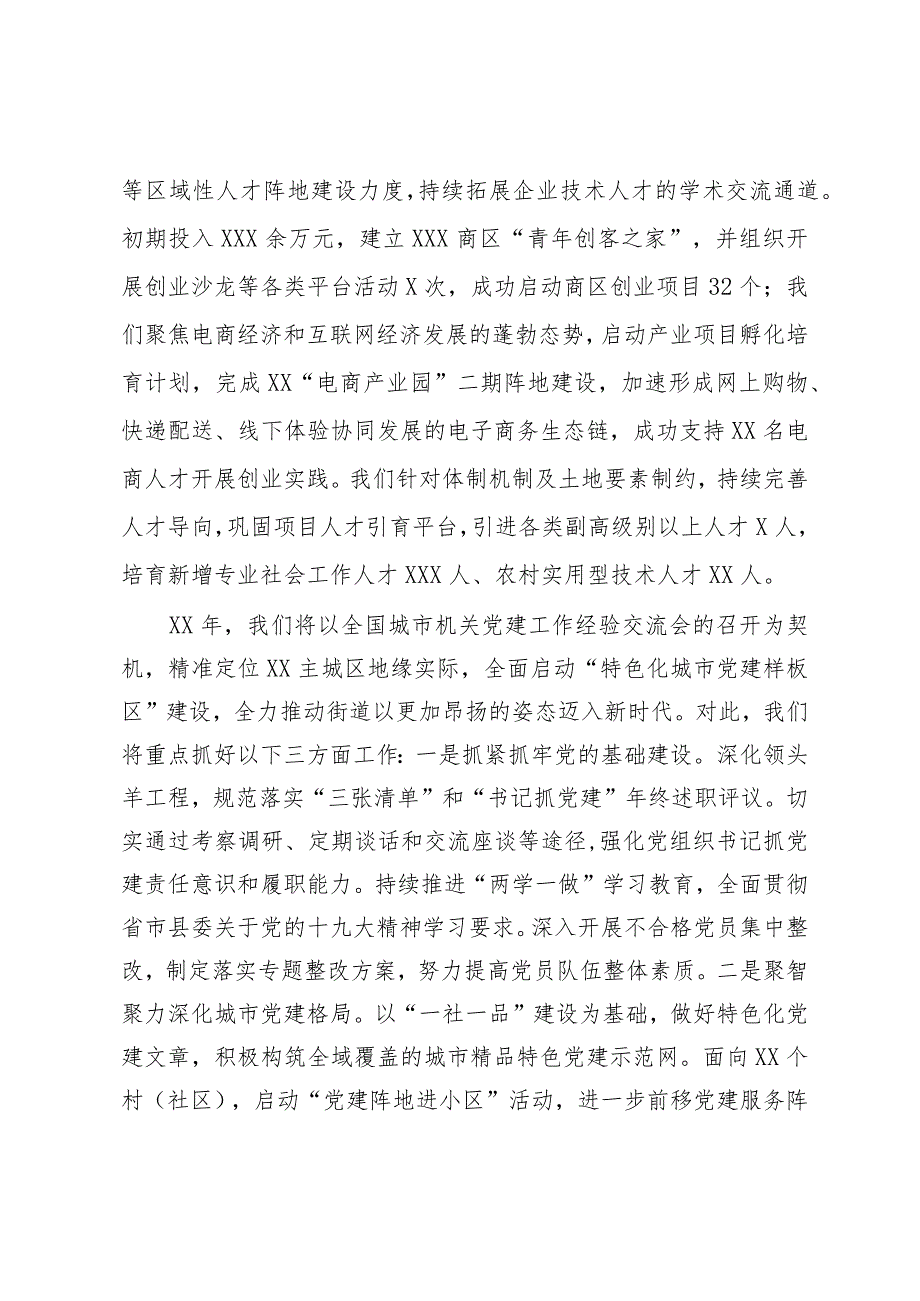 等区域性人才阵地建设力度,持续拓展企业技术人才的学术交流通道。
初期投入 XXX 余万元，建立 XXX 商区“青年创客之家”，并组织开
展创业沙龙等各类平台活动 X 次，成功启动商区创业项目 32 个；我
们聚焦电商经济和互联网经济发展的蓬勃态势，启动产业项目孵化培
育计划，完成 XX“电商产业园”二期阵地建设，加速形成网上购物、
快递配送、线下体验协同发展的电子商务生态链，成功支持 XX 名电
商人才开展创业实践。我们针对体制机制及土地要素制约，持续完善
人才导向,巩固项目人才引育平台,引进各类副高级别以上人才 X 人，
培育新增专业社会工作人才 XXX 人、农村实用型技术人才 XX 人。
XX 年，我们将以全国城市机关党建工作经验交流会的召开为契
机，精准定位 XX 主城区地缘实际，全面启动“特色化城市党建样板
区”建设，全力推动街道以更加昂扬的姿态迈入新时代。对此，我们
将重点抓好以下三方面工作：一是抓紧抓牢党的基础建设。深化领头
羊工程，规范落实“三张清单”和“书记抓党建”年终述职评议。切
实通过考察调研、定期谈话和交流座谈等途径,强化党组织书记抓党
建责任意识和履职能力。持续推进“两学一做”学习教育，全面贯彻
省市县委关于党的十九大精神学习要求。深入开展不合格党员集中整
改，制定落实专题整改方案，努力提高党员队伍整体素质。二是聚智
聚力深化城市党建格局。以“一社一品”建设为基础，做好特色化党
建文章，积极构筑全域覆盖的城市精品特色党建示范网。面向 XX 个
村（社区），启动“党建阵地进小区”活动，进一步前移党建服务阵